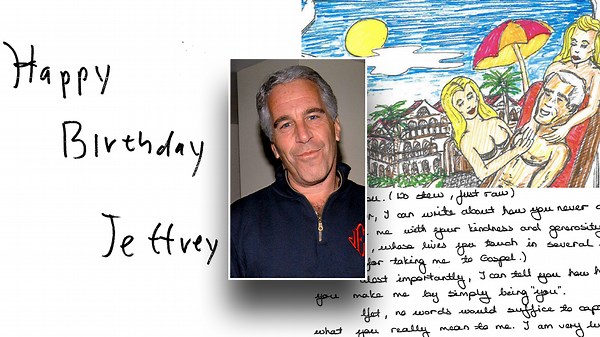 Happy
Birthday
Jeffrey
ou. (No stew, just raw)
r, I can write about how you never
me with your kindness and generosity
, whose lives you touch in several
for taking me to Gospel.)
ost importantly, I can tell you how
you make me by simply being "you".
Yet, no words would suffice to
what you really mean to me. I am very